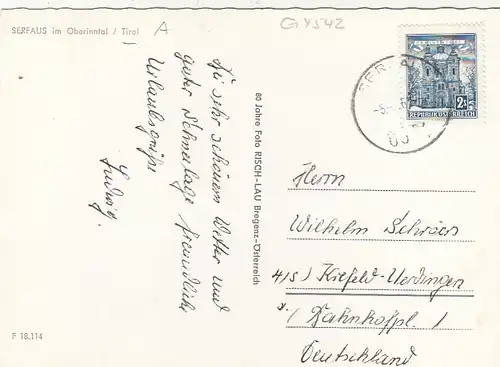 SERFAUS im Oberinntal / Tirol
A
G4542
Zu sehr schönem Wetter und
guter Schneelage freundliche
Urlaubsgrüße
Ludwig.
80 Jahre Foto RISCH-LAU Bregenz-Österreich
REPUBLIK ÖSTERREICH
Herrn
Wilhelm Schröers
415) Krefeld-Uerdingen
Bahnhofpl. 1
Deutschland
F 18.114